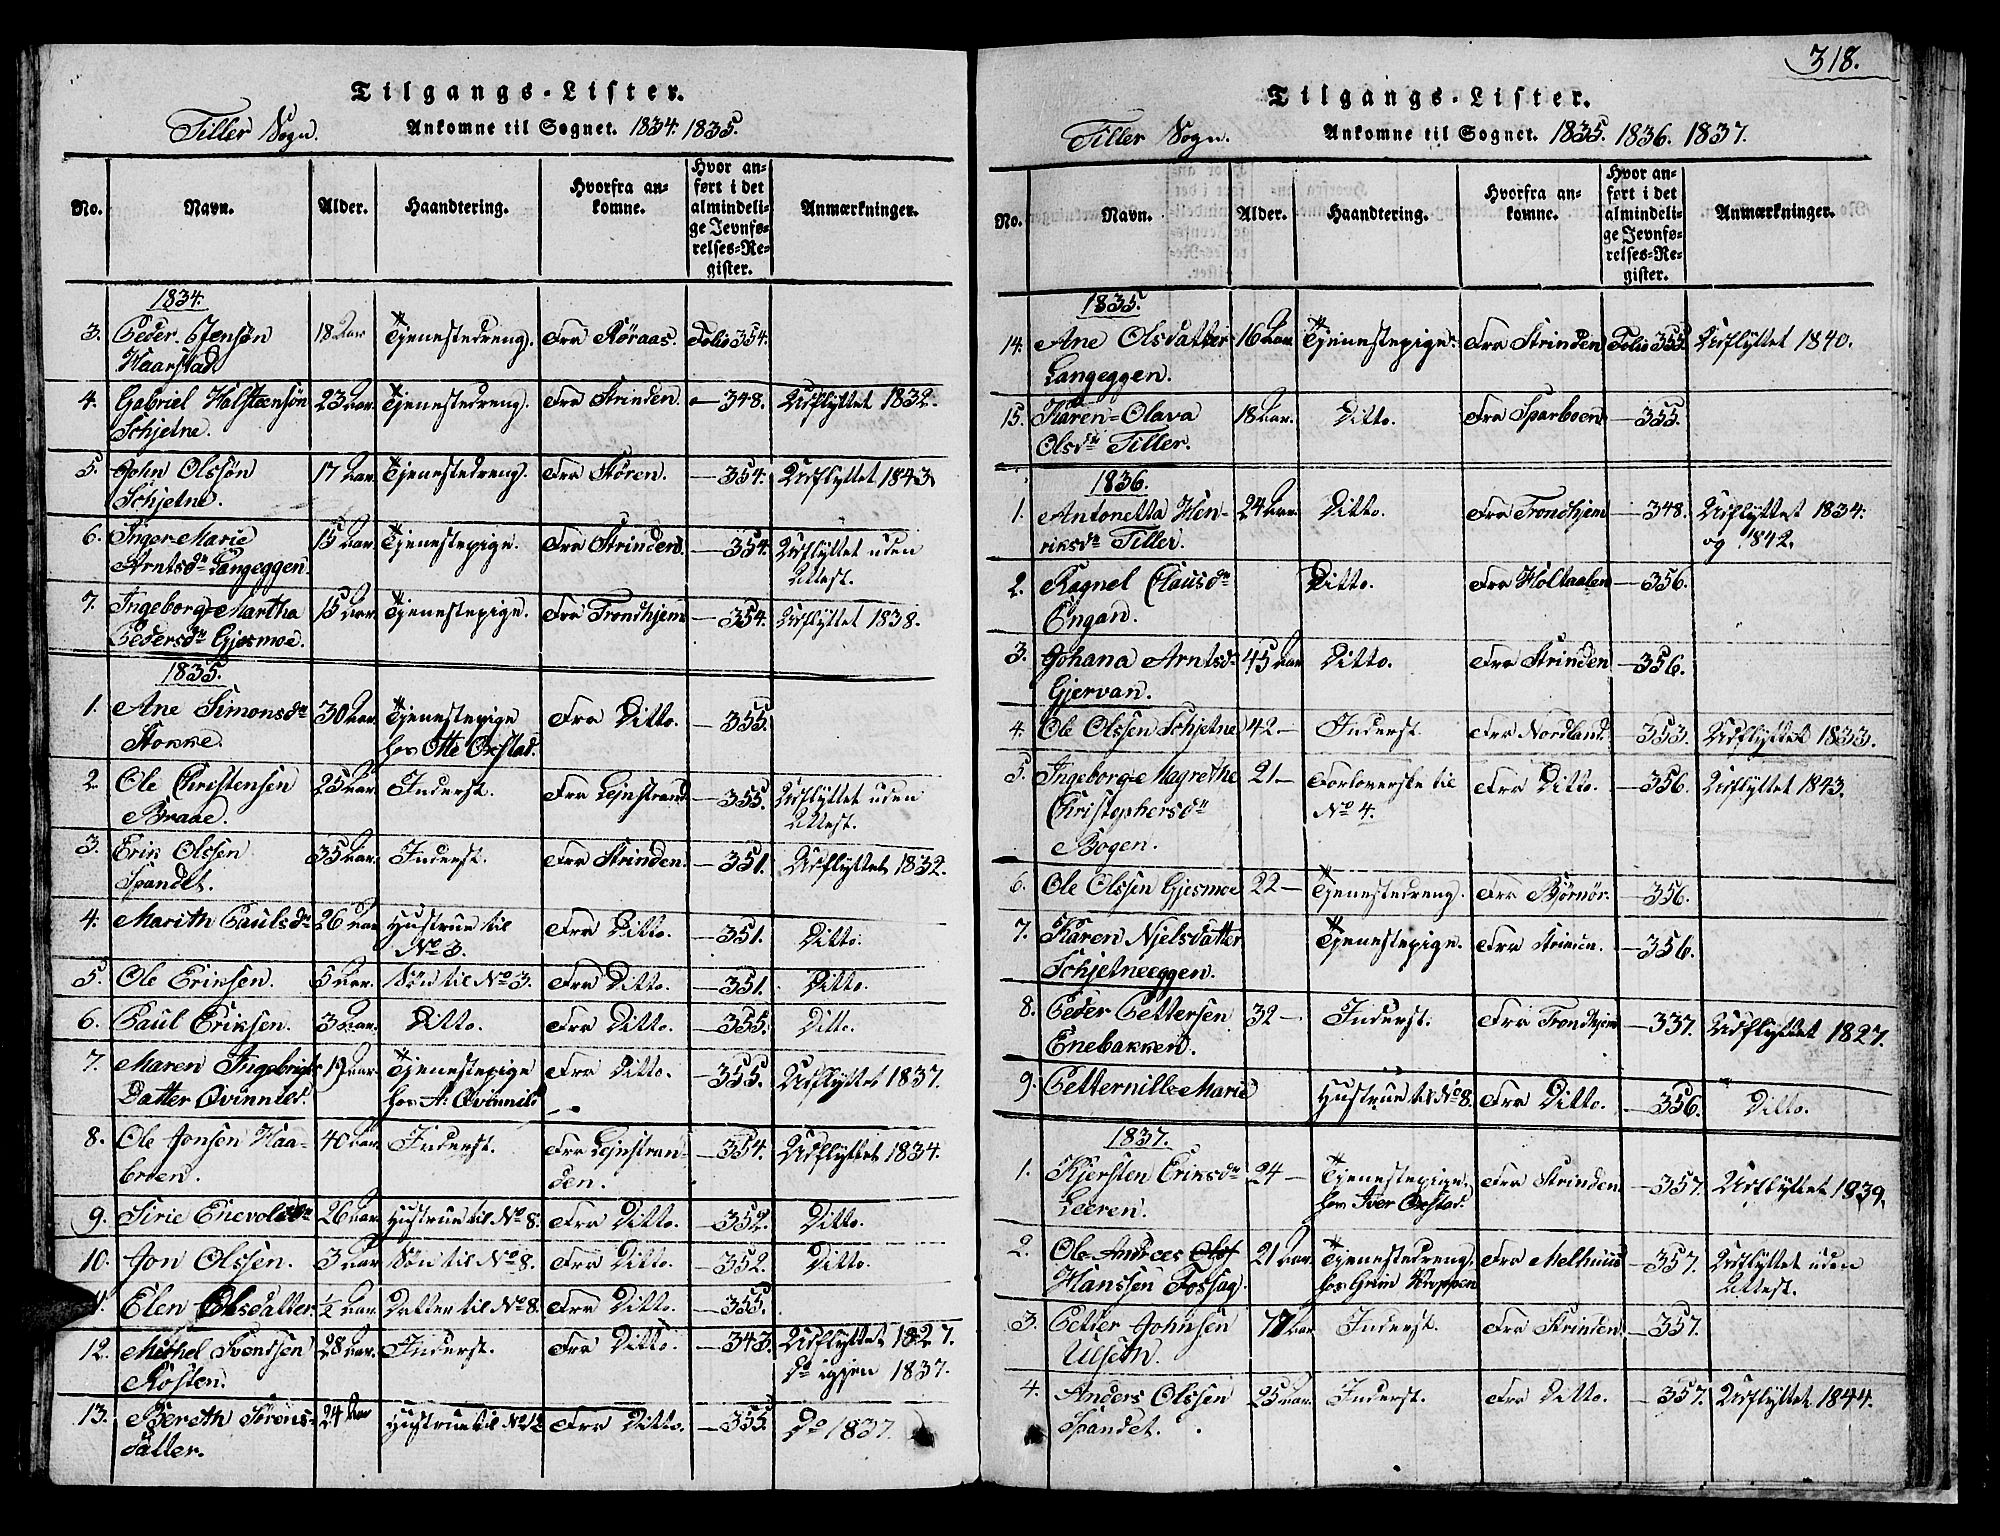 Tilgangs-Lister.
Tiller Sogn. Ankomne til Sognet. 1834. 1835.
No. Navn. Alder. Haandtering. Hvorfra ankomne. Hvor anført i det almindelige Jevnførelses-Register. Anmærkninger.
1834.
3. Peder Jensøn 18 Aar Tjenestedreng. Fra Røraas. Folio 354.
Haarstad
4. Gabriel Halsteensøn 23 Aar. Tjenestedreng. Fra Strinden. — 348. Udflyttet 1832.
Schjetne.
5. John Olssøn 17 Aar. Tjenestedreng. Fra Støren. — 354. Udflyttet 1843.
Schjetne.
6. Inger-Marie 15 Aar. Tjenestepige. Fra Strinden. — 354. Udflyttet uden
Arntsdr Langeggen. Attest.
7. Ingeborg-Martha 15 Aar. Tjenestepige. Fra Trondhjem — 354. Udflyttet 1838.
Pedersdr Gjesmoe.
1835.
1. Ane Simonsdr 30 Aar. Tjenestepige Fra Ditto. — 355.
Stokke. hos Otte Oxstad.
2. Ole Christensen 25 Aar. Inderst. Fra Lejnstrand — 355. Udflyttet uden
Braae. Attest.
3. Erik Olssen 35 Aar. Inderst. Fra Strinden. — 351. Udflyttet 1832.
Spandet.
4. Marith Paulsdr 26 Aar Hustrue til Fra Ditto. — 351. Ditto.
No 3.
5. Ole Eriksen. 5 Aar. Søn til No 3. Fra Ditto. — 351. Ditto.
6. Paul Eriksen. 3 Aar. Ditto. Fra Ditto. — 355. Ditto.
7. Maren Ingebrigts 19 Aar. Tjenestepige Fra Ditto. — 355. Udflyttet 1837.
Datter Qvinnild. hos A: Qvinnild
8. Ole Jonsen Haa- 40 Aar. Inderst. Fra Lejnstran- — 354. Udflyttet 1834.
broen. den.
9. Sirie Enevoldsdr 26 Aar. Hustrue til No 8. Fra Ditto. — 352. Ditto.
10. Jon Olssen. 3 Aar Søn til No 8. Fra Ditto. — 352. Ditto.
11. Elen Olsdatter ½ Aar. Datter til No 8. Fra Ditto. — 355.
12. Michel Svendsen 28 Aar. Inderst. Fra Ditto. — 343. Udflyttet 1827.
Rosten. Do igjen 1837.
13. Bereth Sørens- 24 Aar Hustrue til No 12 Fra Ditto. — 355. Do 1837.
datter.
318.
Tilgangs-Lister.
Tiller Sogn. Ankomne til Sognet. 1835. 1836. 1837.
No. Navn. Alder. Haandtering. Hvorfra ankomne. Hvor anført i det almindelige Jevnførelses-Register. Anmærkninger.
1835.
14. Ane Olsdatter 16 Aar. Tjenestepige. Fra Strinden Folio 355. Udflyttet 1840.
Langeggen.
15. Karen-Olava 18 Aar. Ditto. Fra Sparboen — 355.
Olsdr Tiller.
1836.
1. Antonetta Hen- 24 Aar. Ditto. Fra Trondhjem — 348. Udflyttet 1834.
riksdr Tiller. og 1842.
2. Ragnel Clausdr Ditto. Fra Holtaalen — 356.
Engan.
3. Johana Arntsdr 45 Aar Ditto. Fra Strinden — 356.
Gjervan.
4. Ole Olssen Schjetne 42 — Inderst. Fra Nordland. — 353. Udflyttet 1833.
5. Ingeborg-Magrethe 21 — Forloverske til Fra Ditto. — 356. Udflyttet 1843.
Christophersdr No 4.
Bogen.
6. Ole Olssen Gjesmoe 22 — Tjenestedreng. Fra Bjørnør. — 356.
7. Karen Njelsdatter Tjenestepige. Fra Strinden. — 356.
Schjetneeggen.
8. Peder Pettersen 32 — Inderst. Fra Trondhjem — 337. Udflyttet 1827.
Enebakken.
9. Petternille Marie Hustrue til No 8. Fra Ditto. — 356. Ditto.
1837.
1. Kjersten Eriksdr 24 — Tjenestepige. Fra Strinden — 357. Udflyttet 1839.
Leeren. hos Iver Oxstad.
2. Ole Andreas Olsf 21 Aar. Tjenestedreng. Fra Melhuus — 357. Udflyttet uden
Hanssen Fossag. hos Grim Kroppen Attest.
3. Petter Johnsen 77 Aar Inderst. Fra Strinden. — 357.
Ulseth.
4. Anders Olssen 25 Aar. Inderst. Fra Ditto. — 357. Udflyttet 1844.
Spandet.